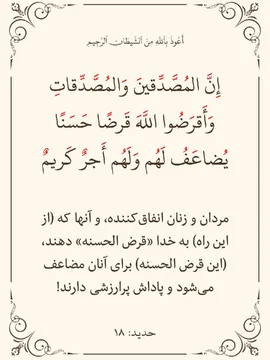 أعوذ بالله من الشیطان الرجیم
إِنَّ المُصَّدِّقينَ وَالمُصَّدِّقاتِ
وَأَقرَضُوا اللَّهَ قَرضًا حَسَنًا
يُضاعَفُ لَهُم وَلَهُم أَجرٌ كَريمٌ
مردان و زنان انفاق‌کننده، و آنها که (از
این راه) به خدا «قرض الحسنه» دهند،
(این قرض الحسنه) برای آنان مضاعف
می‌شود و پاداش پرارزشی دارند!
حدید: ۱۸